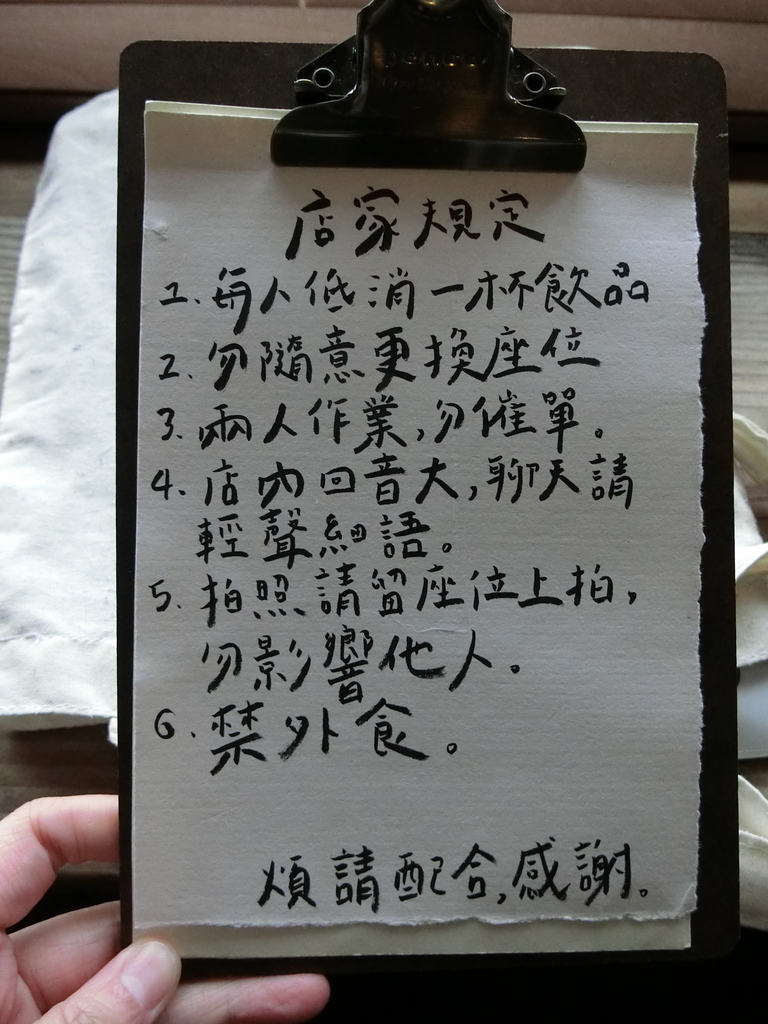 店家規定
1. 每人低消一杯飲品
2. 勿隨意更換座位
3. 兩人作業,勿催單。
4. 店內回音大,聊天請
輕聲細語。
5. 拍照請留座位上拍,
勿影響他人。
6. 禁外食。
煩請配合,感謝。